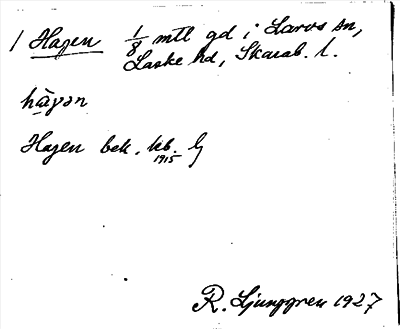 1 Hagen 1/8 mtl gd i Larvs sn,
Laske hd, Skarab. l.
hàgən
Hagen bek. kb. G
1915
R. Ljunggren 1927